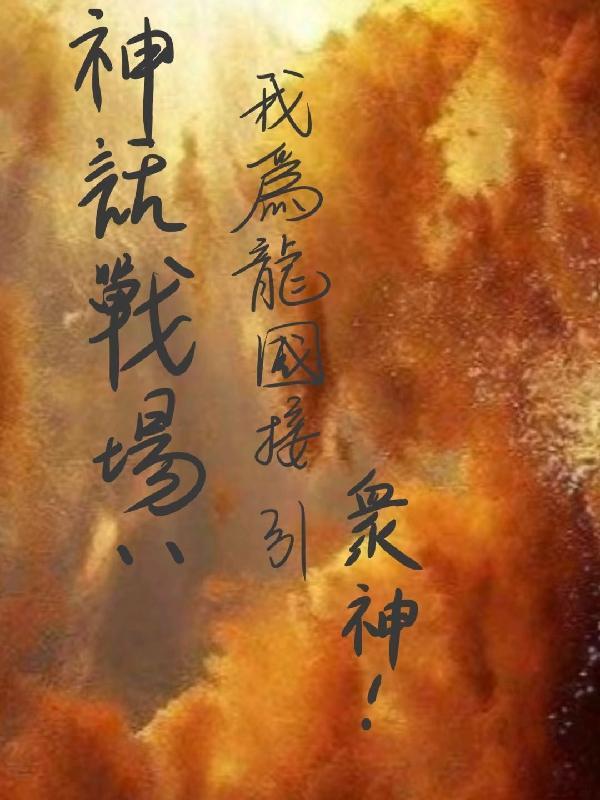 神話戰場：
我為龍國接引
眾神！